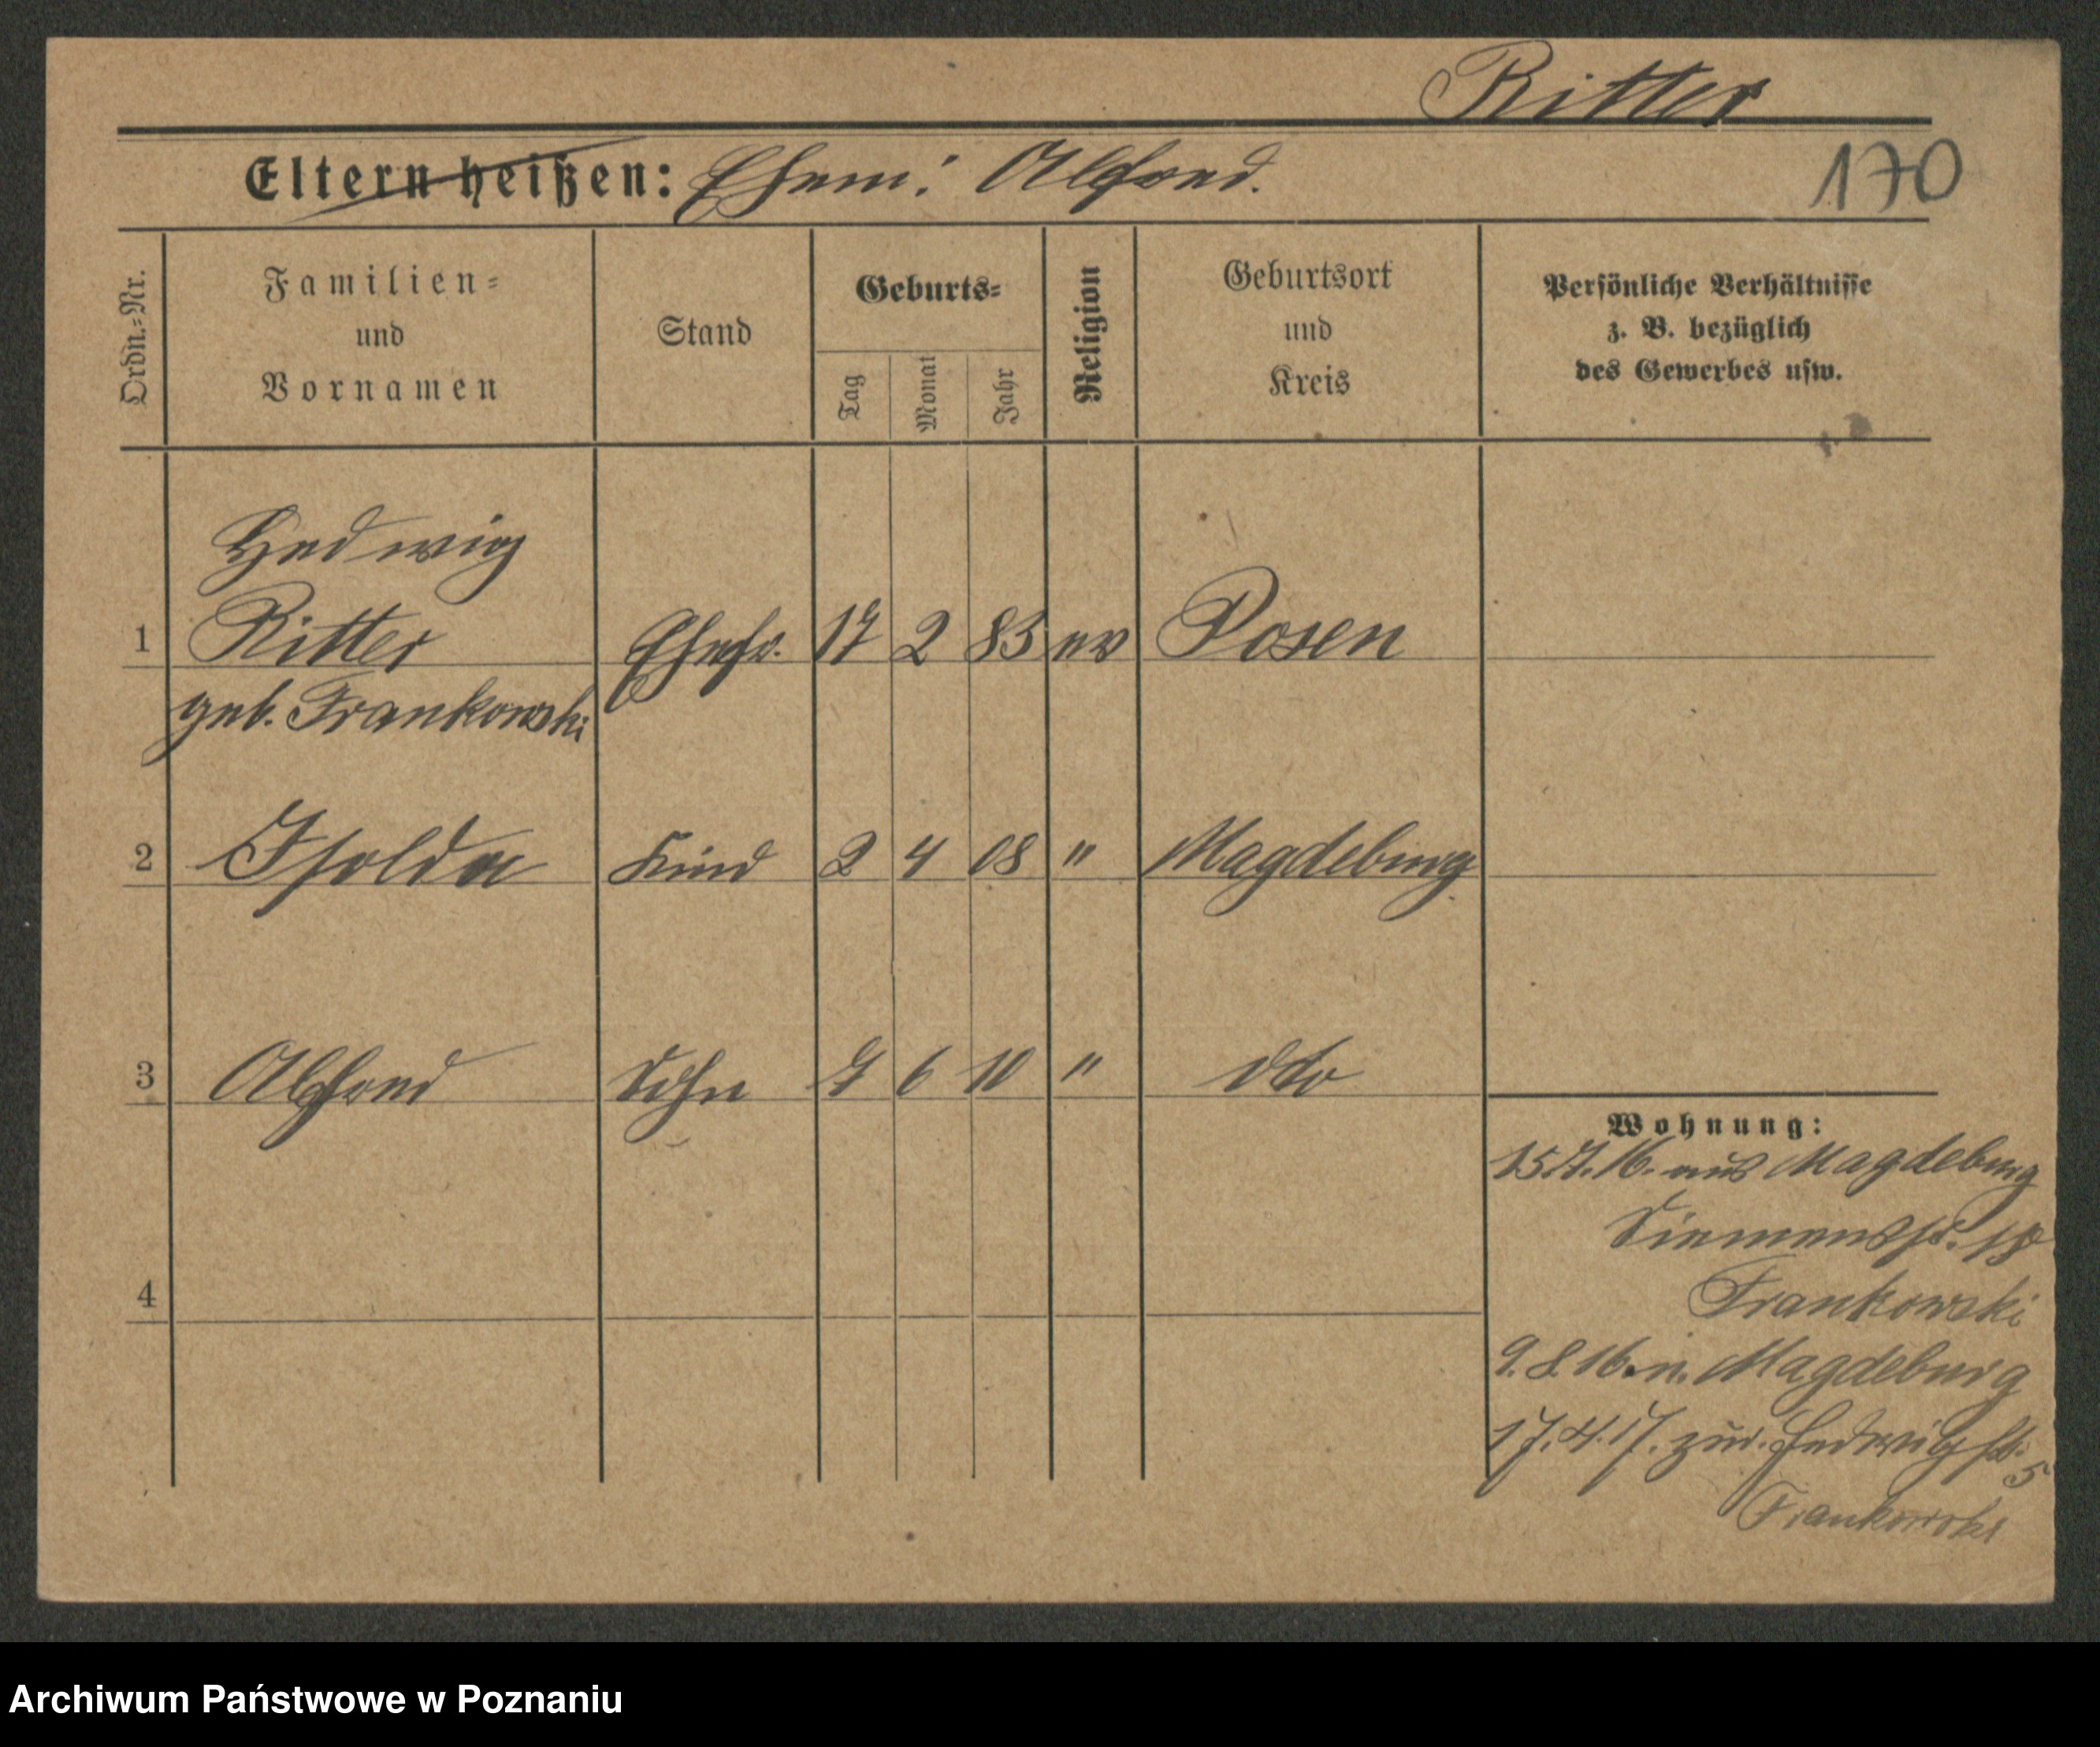 Ritter
Eltern heißen: Ehem: Alfred.
170
Ordn.-Nr.
Familien-
und
Vornamen
Stand
Geburts-
Tag
Monat
Jahr
Religion
Geburtsort
und
Kreis
Persönliche Verhältnisse
z. B. bezüglich
des Gewerbes usw.
Hedwig
1 Ritter Ehefr. 17 2 85 ev Posen
geb. Frankowski
2 Isolde Kind 2 4 08 " Magdeburg
3 Alfred Sohn 7 6 10 " dto
4
Wohnung:
15.7.16. aus Magdeburg
Siemensstr. 18
Frankowski
9.8.16. n. Magdeburg
17.4.17. zur. Hedwigstr.
5
Frankowski
Archiwum Państwowe w Poznaniu